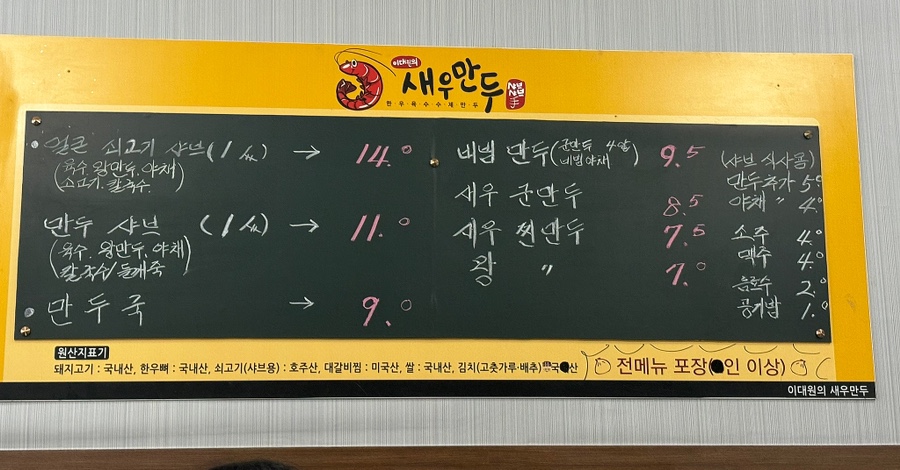 이대원의
새우만두
샤브샤브
한·우·육·수·수·제·만·두
얼큰 쇠고기 샤브(1人) → 14.0
(육수.왕만두.야채
쇠고기.칼국수.)
만두 샤브 (1人) → 11.0
(육수.왕만두.야채
칼국수/들깨죽)
만두국 → 9.0
비빔 만두(군만두 4알 비빔야채) 9.5
새우 군만두 8.5
새우 찐만두 7.5
왕 〃 7.0
(샤브 식사중)
만두추가 5.0
야채 〃 4.0
소주 4.0
맥주 4.0
음료수 2.0
공기밥 1.0
원산지표기
돼지고기 : 국내산, 한우뼈 : 국내산, 쇠고기(샤브용) : 호주산, 대갈비찜 : 미국산, 쌀 : 국내산, 김치(고춧가루·배추)
전메뉴 포장(인 이상)
이대원의 새우만두